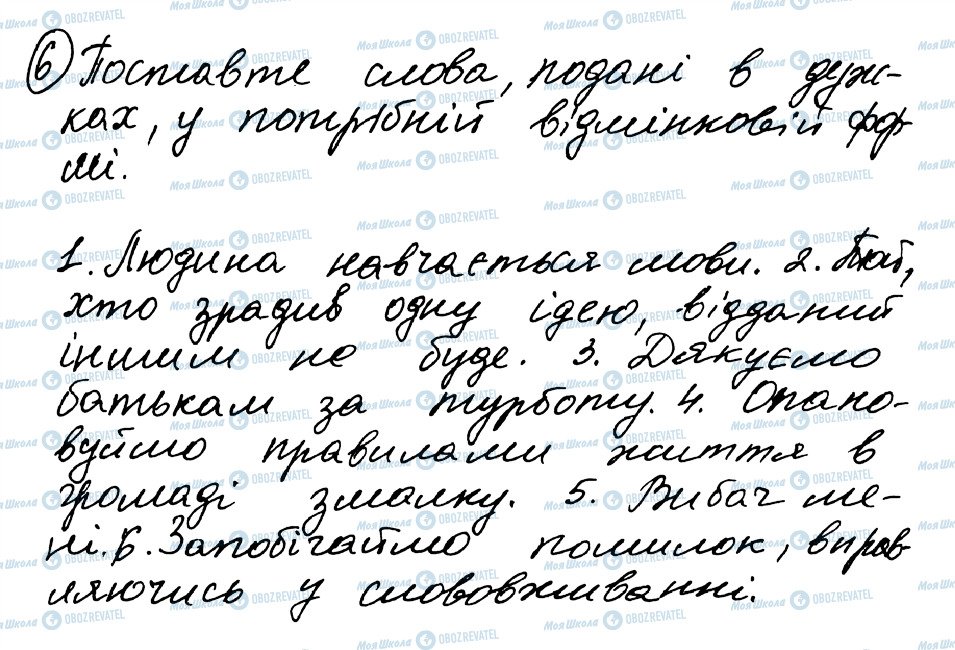 6 Поставте слова, подані в дуж-
ках, у потрібній відмінковій фор
мі.
1. Людина навчається мови. 2. Той,
хто зрадив одну ідею, відданий
іншим не буде. 3. Дякуємо
батькам за турботу. 4. Опано-
вуймо правилами життя в
громаді змалку. 5. Вибач ме-
ні. 6. Запобігаймо помилок, вправ
ляючись у слововживанні.